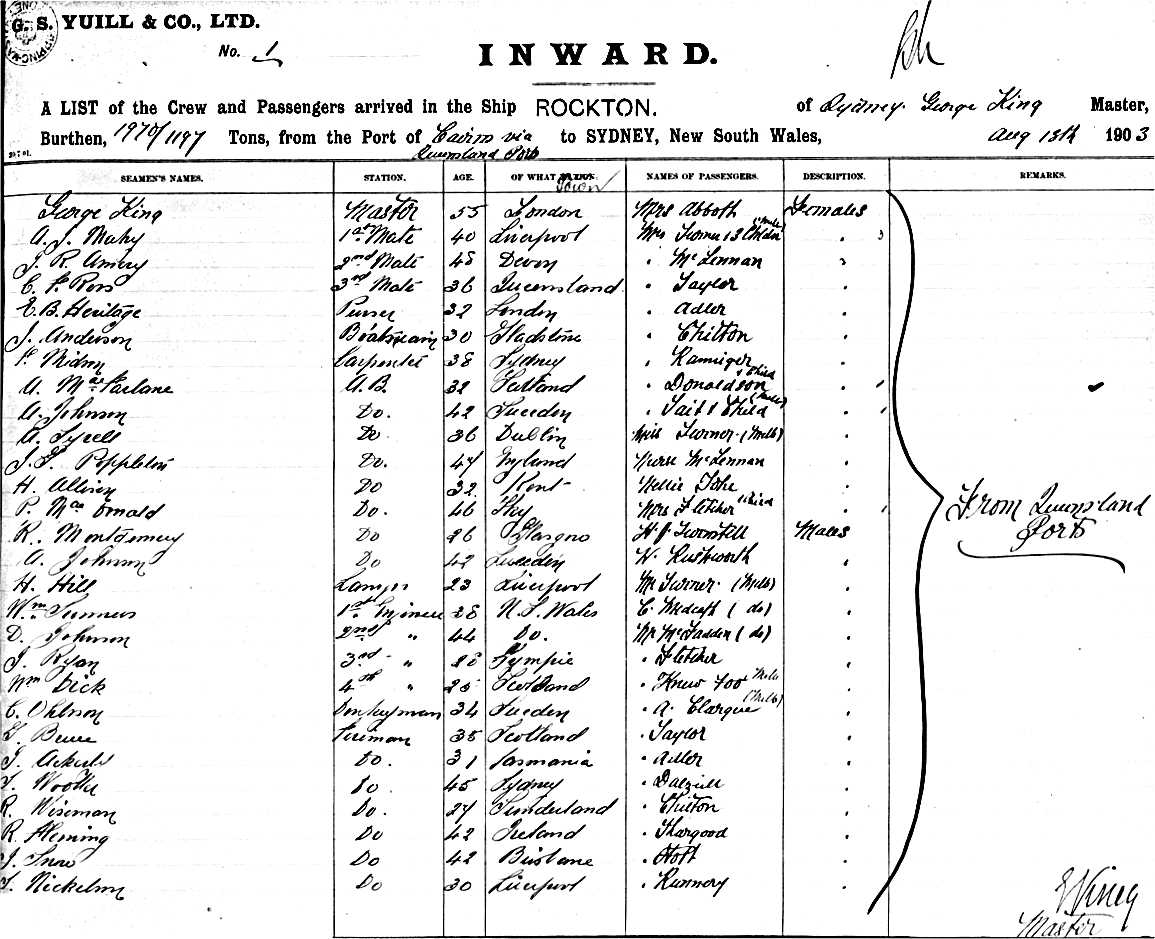 G. S. YUILL & CO., LTD.
No. 1
INWARD.
A LIST of the Crew and Passengers arrived in the Ship ROCKTON. of Sydney. George King Master,
Burthen, 1970/1197 Tons, from the Port of Cairns via to SYDNEY, New South Wales, Aug 18th 1903
Queensland Ports
SEAMEN'S NAMES. STATION. AGE. OF WHAT NATION. NAMES OF PASSENGERS. DESCRIPTION. REMARKS.
Town
George King Master 55 London Mrs Abbott Females
A. J. Mahy 1st Mate 40 Liverpool Mrs Turner & 3 Childn 3
J. R. Amery 2nd Mate 48 Devon " McLennan "
C. F. Ross 3rd Mate 36 Queensland " Taylor "
E. B. Heritage Purser 32 London " Adler "
J. Anderson Boatswain 30 Gladstone " Chilton "
Carpenter 38 Sydney "
A. MacFarlane A.B. 32 " Donaldson & Child "
A. Johnson Do. 42 Sweden " Tait & Child "
A. Do 36 Dublin Miss Turner (Melb) "
Poppleton Do. 47 Nurse McLennan "
H. Do 32 Kent Nellie "
P. MacDonald Do. 46 Sky Mrs Fletcher & Child "
R. Montgomery Do 26 Glasgow Males
A. Johnson Do 42 Sweden W. Rushworth "
H. Hill Lamps 23 Liverpool Mr Turner (Melb) "
Wm 1st Engineer 38 N. S. Wales C. (do) "
D. Johnson 2nd " 44 Do. Mr McFadden (do) "
J. Ryan 3rd " 28 Gympie " Fletcher "
Wm Dick 4th " 25 Scotland " Melb "
C. Ohlson Donkeyman 34 Sweden " A. Clarque (Melb) "
Fireman 35 Scotland " Taylor "
J. Do. 31 Tasmania " Adler "
Do 45 Sydney " Dalziell "
R. Wiseman Do. 27 Sunderland " Chilton "
R. Fleming Do 42 Ireland " Thorgood "
J. Snow Do 42 Brisbane " Holt "
Nickelson Do 30 Liverpool "
From Queensland
Ports
King
Master